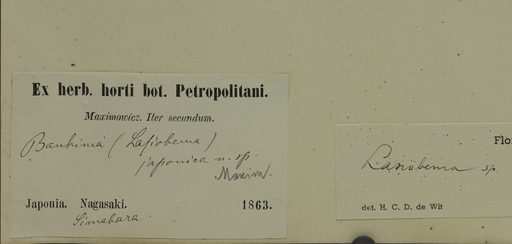 Ex herb. horti bot. Petropolitani.
Maximowicz. Iter secundum.
Bauhinia (Lasiobema)
japonica n. sp.
Maxim.
Japonia. Nagasaki. 1863.
Simabara.
Flo
Lasiobema sp
det. H. C. D. de Wit